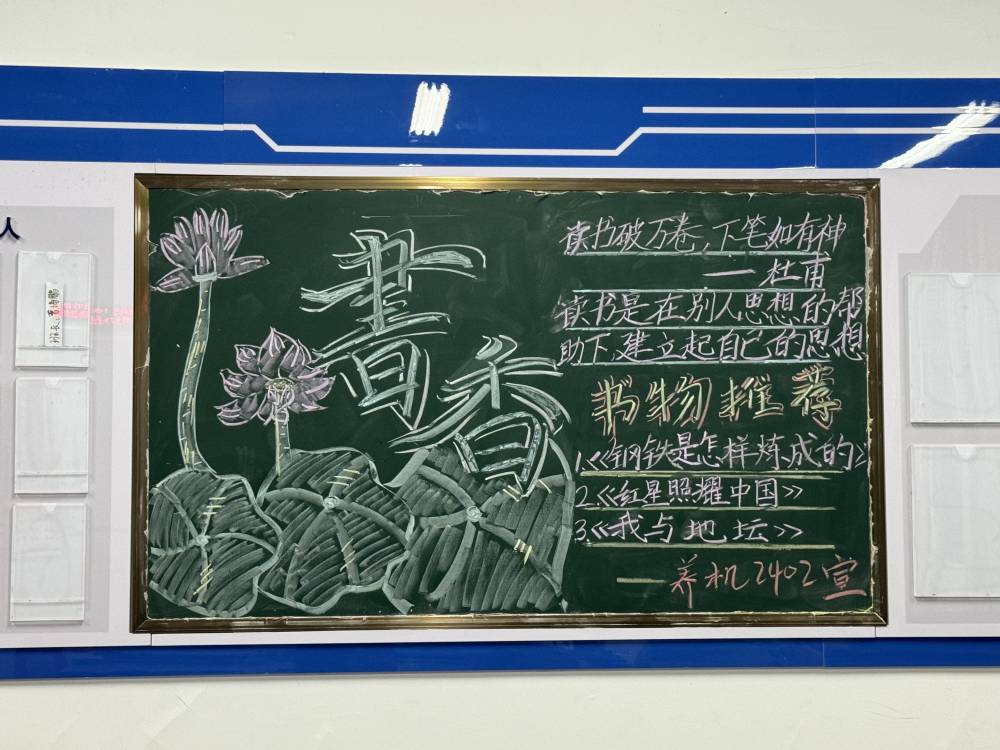 人
書香
读书破万卷，下笔如有神
— 杜甫
读书是在别人思想的帮
助下，建立起自己的思想
书物推荐
1.《钢铁是怎样炼成的》
2.《红星照耀中国》
3.《我与地坛》
— 养机2402宣